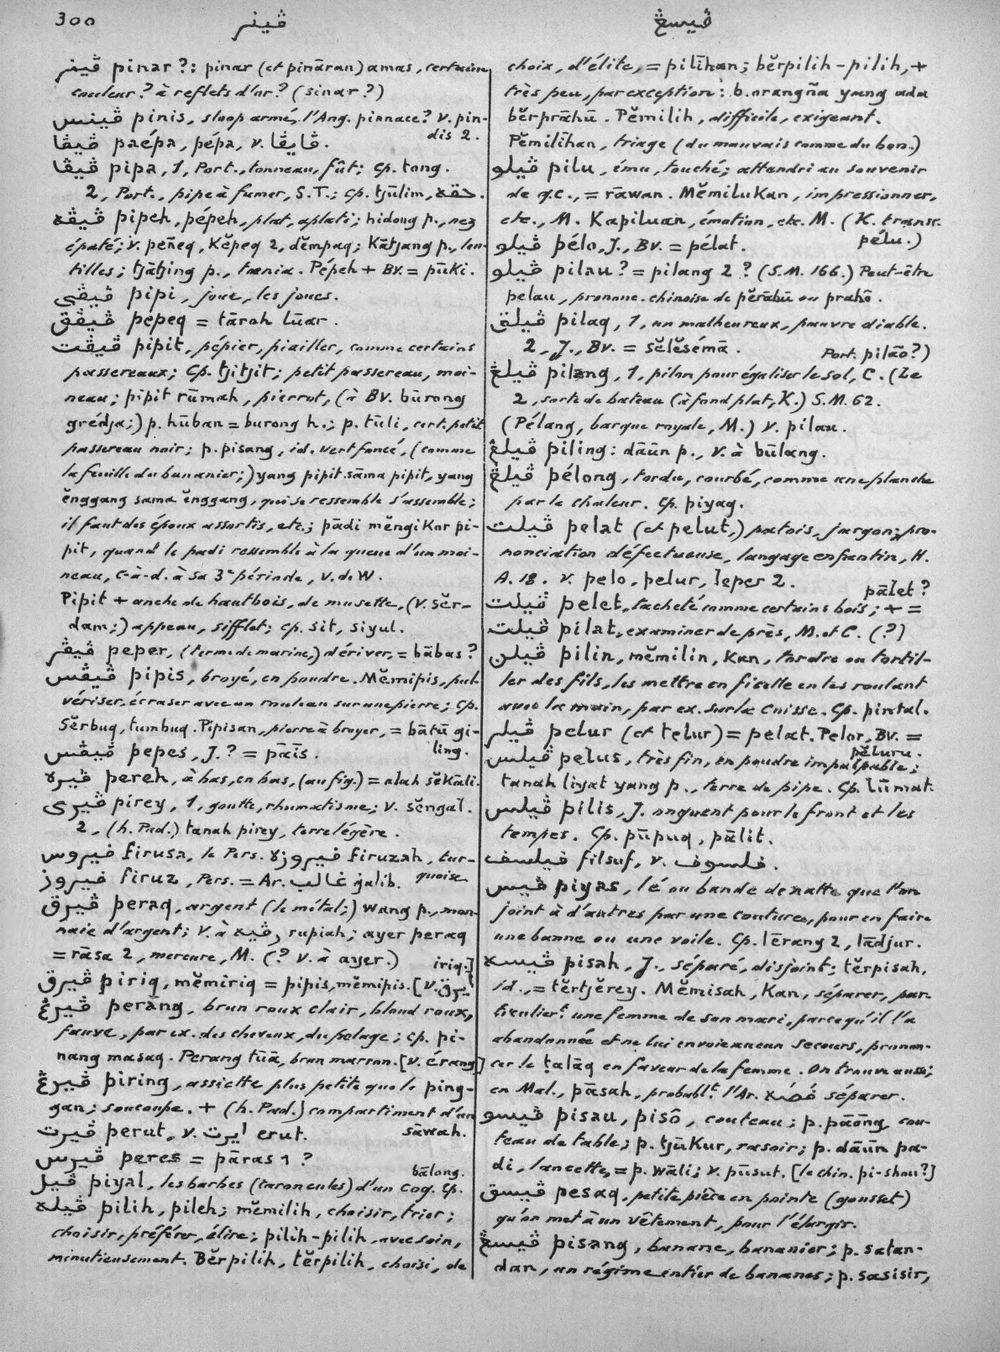 300
ڤينر
ڤيسڠ
ڤينر pinar ?: pinar (et pināran) amas, certaine
couleur? à reflets d'or? (sinar?)
ڤينس pinis, sloop armé, l'Ang. pinnace? v. pin-
dis 2.
ڤيڤا paépa, pépa, v. ڤايڤا.
ڤيڤا pipa, 1, Port., tonneau, fût; Cp. tong.
2, Port., pipe à fumer, S.T.; Cp. tjūlim, حقه.
ڤيڤه pipeh, pépeh, plat, aplati; hidong p., nez
épaté; v. peñeq, Kĕpeq 2, dĕmpaq; Kātjang p., len-
tilles; tjātjing p., tœnia. Pépeh + BV. = pūki.
ڤيڤي pipi, joue, les joues.
ڤيڤق pepeq = tārah lūar.
ڤيڤت pipit, pépier, piailler, comme certains
passereaux; Cp. tjitjit; petit passereau, moi-
neau; pipit rūmah, pierrot, (à BV. būrong
grédja;) p. hūban = burong h.; p. tūli, cert. petit
passereau noir; p. pisang, id. vert foncé, (comme
la feuille du bananier;) yang pipit sāma pipit, yang
ĕnggang sama ĕnggang, qui se ressemble s'assemble;
il faut des époux assortis, etc.; pādi mĕngikor pi-
pit, quand le padi ressemble à la queue d'un moi-
neau, c-à-d. à sa 3e période, v. de W.
Pipit + anche de hautbois, de musette, (v. sĕr-
dam;) appeau, sifflet; cp. sit, siyul.
ڤيڤر peper, (terme de marine,) dériver, = bābas?
ڤيڤس pipis, broyé, en poudre. Mĕmipis, pul-
vériser, écraser avec un rouleau sur une pierre; Cp.
Sĕrbuq, tumbuq. Pipisan, pierre à broyer, = bātū gi-
ling.
ڤيڤس pepes, J. ? = pāis.
ڤيره pereh, à bas, en bas, (au fig.) = alah sĕkāli.
ڤيري pirey, 1, goutte, rhumatisme; v. sĕngal.
2, (h. Pad.) tanah pirey, terre légère.
فيروس firusa, le Pers. فيروزه firuzah, tur-
quoise.
فيروز firuz, Pers. = Ar. غالب ġalib.
ڤيرق peraq, argent (le métal;) wang p., mon-
naie d'argent; v. à رڤيه rupiah; ayer peraq
= rāsa 2, mercure, M. (? v. à ayer.)
ڤيرق piriq, mĕmiriq = pipis, mĕmipis. [v. يرق iriq.]
ڤيرڠ perang, brun roux clair, blond roux,
fauve, par ex. des cheveux, du pelage; cp. pi-
nang masaq. Perang tūa, brun marron. [v. érang]
ڤيرڠ piring, assiette plus petite que le ping-
gan; soucoupe. + (h. Pad.) compartiment d'un
sāwah.
ڤيرت perut, v. ايرت erut.
ڤيرس peres = pāras 1 ?
ڤيل piyal, les barbes (caroncules) d'un coq. Cp.
bālong.
ڤيله pilih, pileh; mĕmilih, choisir, trier;
choisir, préférer, élire; pilih-pilih, avec soin,
minutieusement. Bĕrpilih, tĕrpilih, choisi, de
choix, d'élite, = pilīhan; bĕrpilih-pilih, +
très peu, par exception: b. orangña yang ada
bĕrprāhū. Pĕmilih, difficile, exigeant.
Pĕmilīhan, triage (du mauvais comme du bon.)
ڤيلو pilu, ému, touché; attendri au souvenir
de q.c., = rāwan. Mĕmilukan, impressionner,
etc., M. Kapiluan, émotion, etc. M. (K. transc.
pélu.)
ڤيلو pélo, J., BV. = pélat.
ڤيلو pilau? = pilang 2 ? (S.M. 166.) Peut-être
pelau, prononc. chinoise de pĕrābū ou praho.
ڤيلق pilaq, 1, un malheureux, pauvre diable.
2, J., BV. = sĕlĕsémā.
ڤيلڠ pilang, 1, pilon pour égaliser le sol, C. (Le
Port. pilāo?)
2, sorte de bateau (à fond plat, K.) S.M. 62.
(Pélang, barque royale, M.) v. pilau.
ڤيلڠ piling: dāūn p., v. à būlang.
ڤيلڠ pélong, tordu, courbé, comme une planche
par la chaleur. Cp. piyaq.
ڤيلت pelat (et pelut,) patois, jargon; pro-
nonciation défectueuse, langage enfantin, H.
A. 18. v. pelo, pelur, leper 2.
ڤيلت pelet, tacheté comme certains bois; + =
pālet ?
ڤيلت pilat, examiner de près, M. et C. (?)
ڤيلن pilin, mĕmilin, Kan, tordre ou tortil-
ler des fils, les mettre en ficelle en les roulant
avec la main, par ex. sur la cuisse. Cp. pintal.
ڤيلر pelur (et telur) = pelat. Pelor, BV. =
pĕluru.
ڤيلس pelus, très fin, en poudre impalpable;
tanah liyat yang p., terre de pipe. Cp. lūmat.
ڤيلس pilis, J. onguent pour le front et les
tempes. Cp. pūpuq, pālit.
فيلسف filsuf, v. فلسوف.
ڤيس piyas, lé ou bande de natte que l'on
joint à d'autres par une couture, pour en faire
une banne ou une voile. Cp. lērang 2, lādjur.
ڤيسه pisah, J., séparé, disjoint; tĕrpisah,
id., = tĕrtjĕrey. Mĕmisah, Kan, séparer, par-
ticuliert. une femme de son mari, parce qu'il l'a
abandonnée et ne lui envoie aucun secours, pronon-
cer le ṭalāq en faveur de la femme. On trouve aussi,
en Mal., pāsah, probablt. l'Ar. فصه séparer.
ڤيسو pisau, pisō, couteau; p. pāōng, cou-
teau de table; p. tjūkur, rasoir; p. dāūn pa-
di, lancette, = p. wāli; v. pūsut. [le chin. pi-shau?]
ڤيسق pesaq, petite pièce en pointe (gousset)
qu'on met à un vêtement, pour l'élargir.
ڤيسڠ pisang, banane, bananier; p. satan-
dan, un régime entier de bananes; p. sasisir,